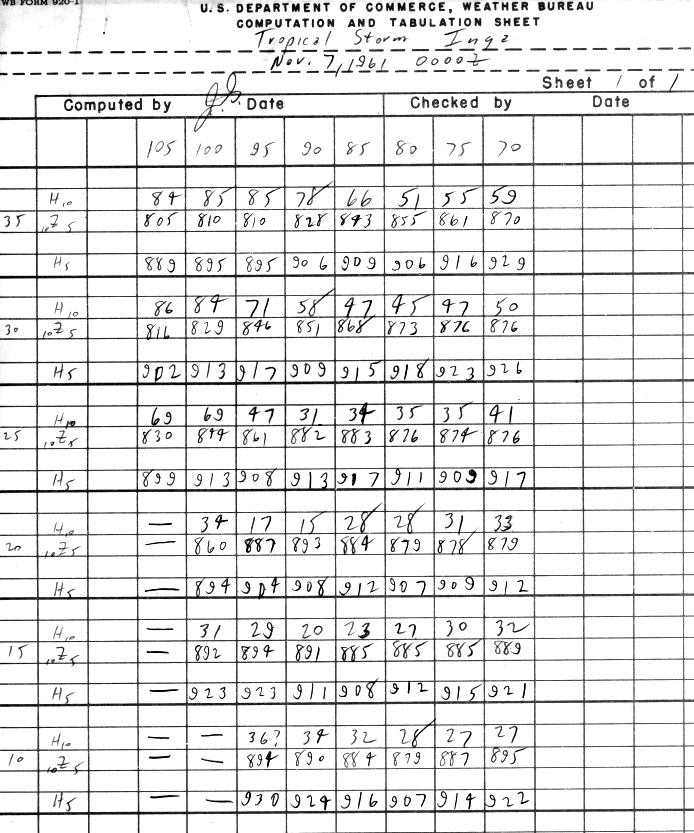 WB FORM 920-1
U. S. DEPARTMENT OF COMMERCE, WEATHER BUREAU
COMPUTATION AND TABULATION SHEET
Tropical Storm Inga
Nov. 7, 1961 0000Z
Sheet 1 of 1
Computed by J.S. Date Checked by Date
105 100 95 90 85 80 75 70
H10 84 85 85 78 66 51 55 59
35 10Z5 805 810 810 828 843 855 861 870
H5 889 895 895 906 909 906 916 929
H10 86 84 71 58 47 45 47 50
30 10Z5 816 829 846 851 868 873 876 876
H5 902 913 917 909 915 918 923 926
H10 69 69 47 31 34 35 35 41
25 10Z5 830 844 861 882 883 876 874 876
H5 899 913 908 913 917 911 909 917
H10 — 34 17 15 28 28 31 33
20 10Z5 — 860 887 893 884 879 878 879
H5 — 894 904 908 912 907 909 912
H10 — 31 29 20 23 27 30 32
15 10Z5 — 892 894 891 885 885 885 889
H5 — 923 923 911 908 912 915 921
H10 — — 36? 34 32 28 27 27
10 10Z5 — — 894 890 884 879 887 895
H5 — — 930 924 916 907 914 922